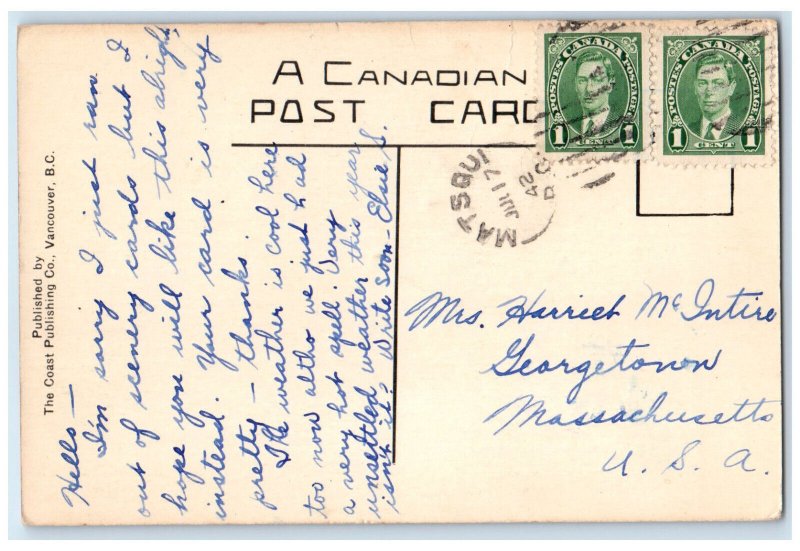 Published by
The Coast Publishing Co., Vancouver, B.C.
Hello —
I'm sorry I just ran
out of scenery cards but I
hope you will like this alright
instead. Your card is very
pretty – thanks.
The weather is cool here
too now altho we just had
a very hot spell. Very
unsettled weather this year
isn't it? Write soon – Elsie S.
A CANADIAN
POST CARD
POSTES CANADA POSTAGE
1 CENT 1
POSTES CANADA POSTAGE
1 CENT 1
MATSQUI
JUL 17
42
B.C.
Mrs. Harriet McIntire
Georgetown
Massachusetts
U. S. A.